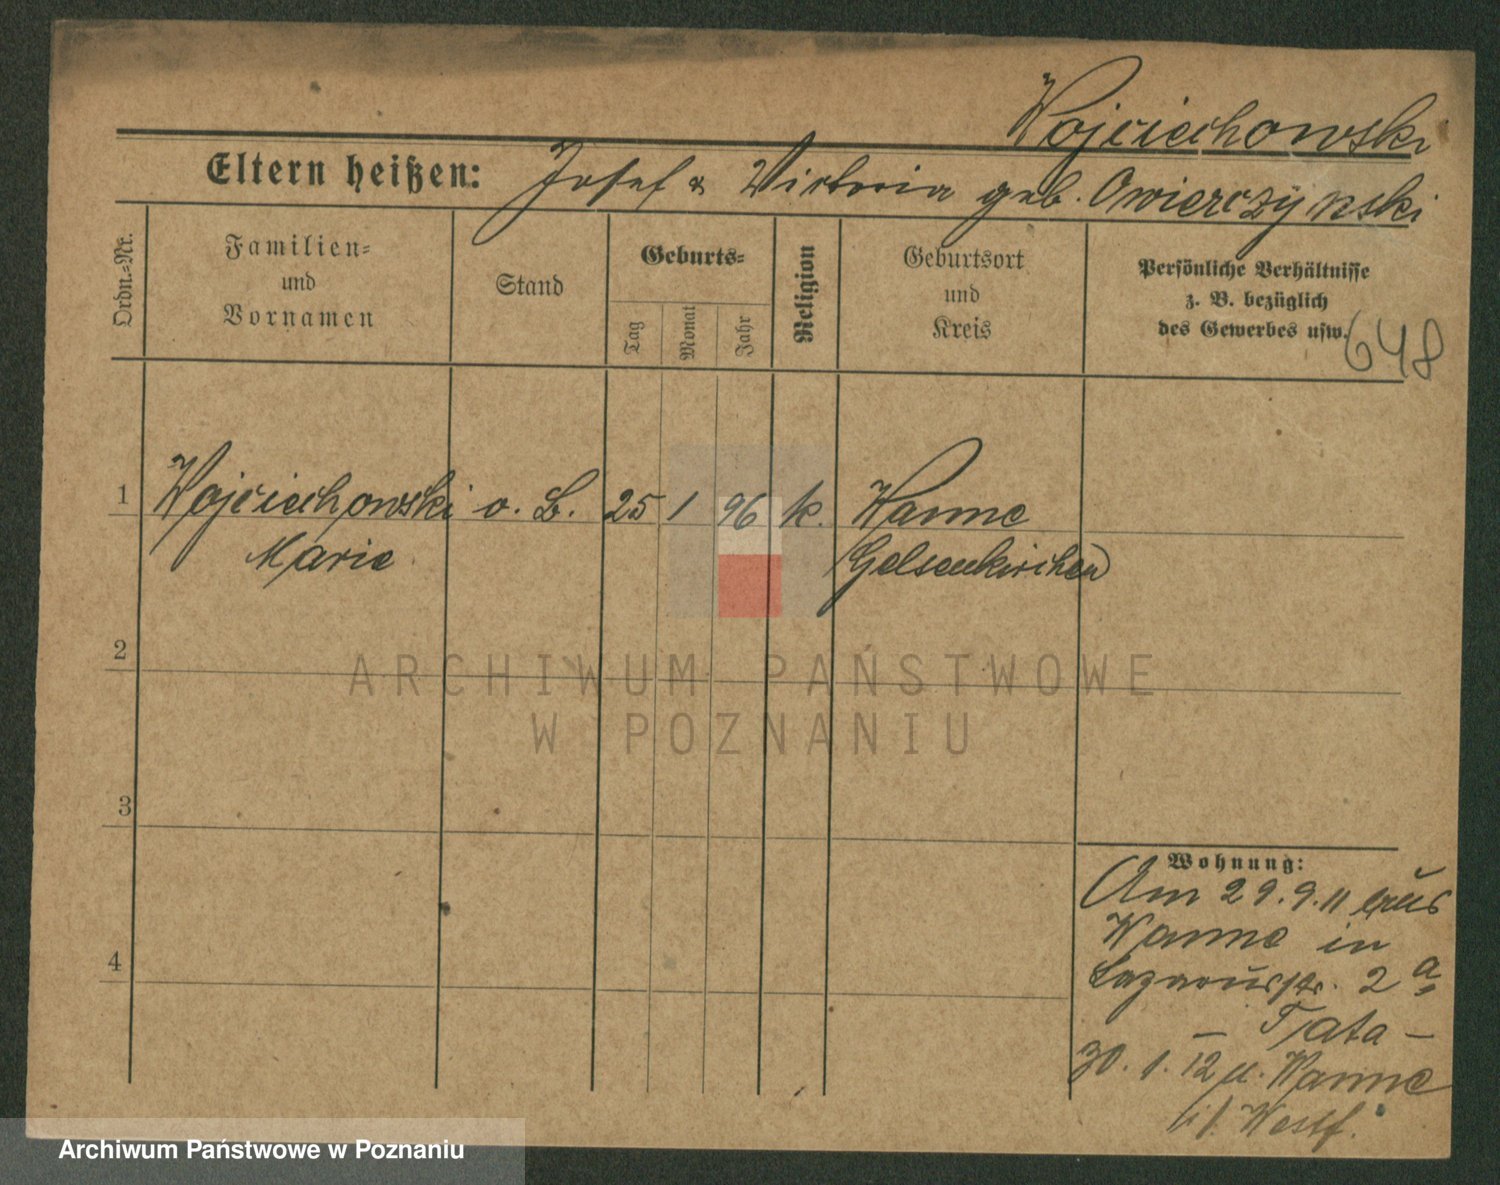 Wojciechowski
Eltern heißen: Josef & Victoria geb. Owierczynski
Ordn.=Nr.
Familien=
und
Vornamen
Stand
Geburts=
Tag
Monat
Jahr
Religion
Geburtsort
und
Kreis
Persönliche Verhältnisse
z. B. bezüglich
des Gewerbes usw.
648
1 Wojciechowski o. B. 25 1 96 k. Wanne
Marie Gelsenkirchen
2
ARCHIWUM PAŃSTWOWE
W POZNANIU
3
Wohnung:
Am 29.9.11 aus
Wanne in
Lazarusstr. 2a
4
30. 1. 12 n. Wanne
i/ Westf.
Archiwum Państwowe w Poznaniu